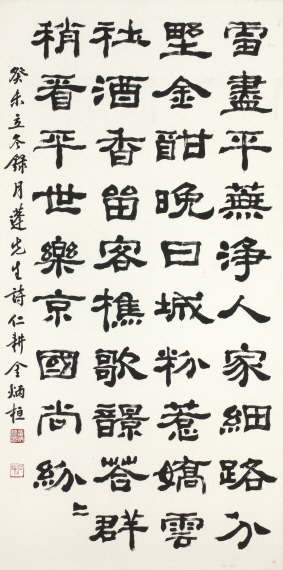 雪盡平蕪淨人家細路分
墅金酣晩日城粉惹嬌雲
社酒香留客樵歌答群
稍看平世樂京國尚紛〻
癸未立冬錄月蓬先生詩仁耕金炳桓